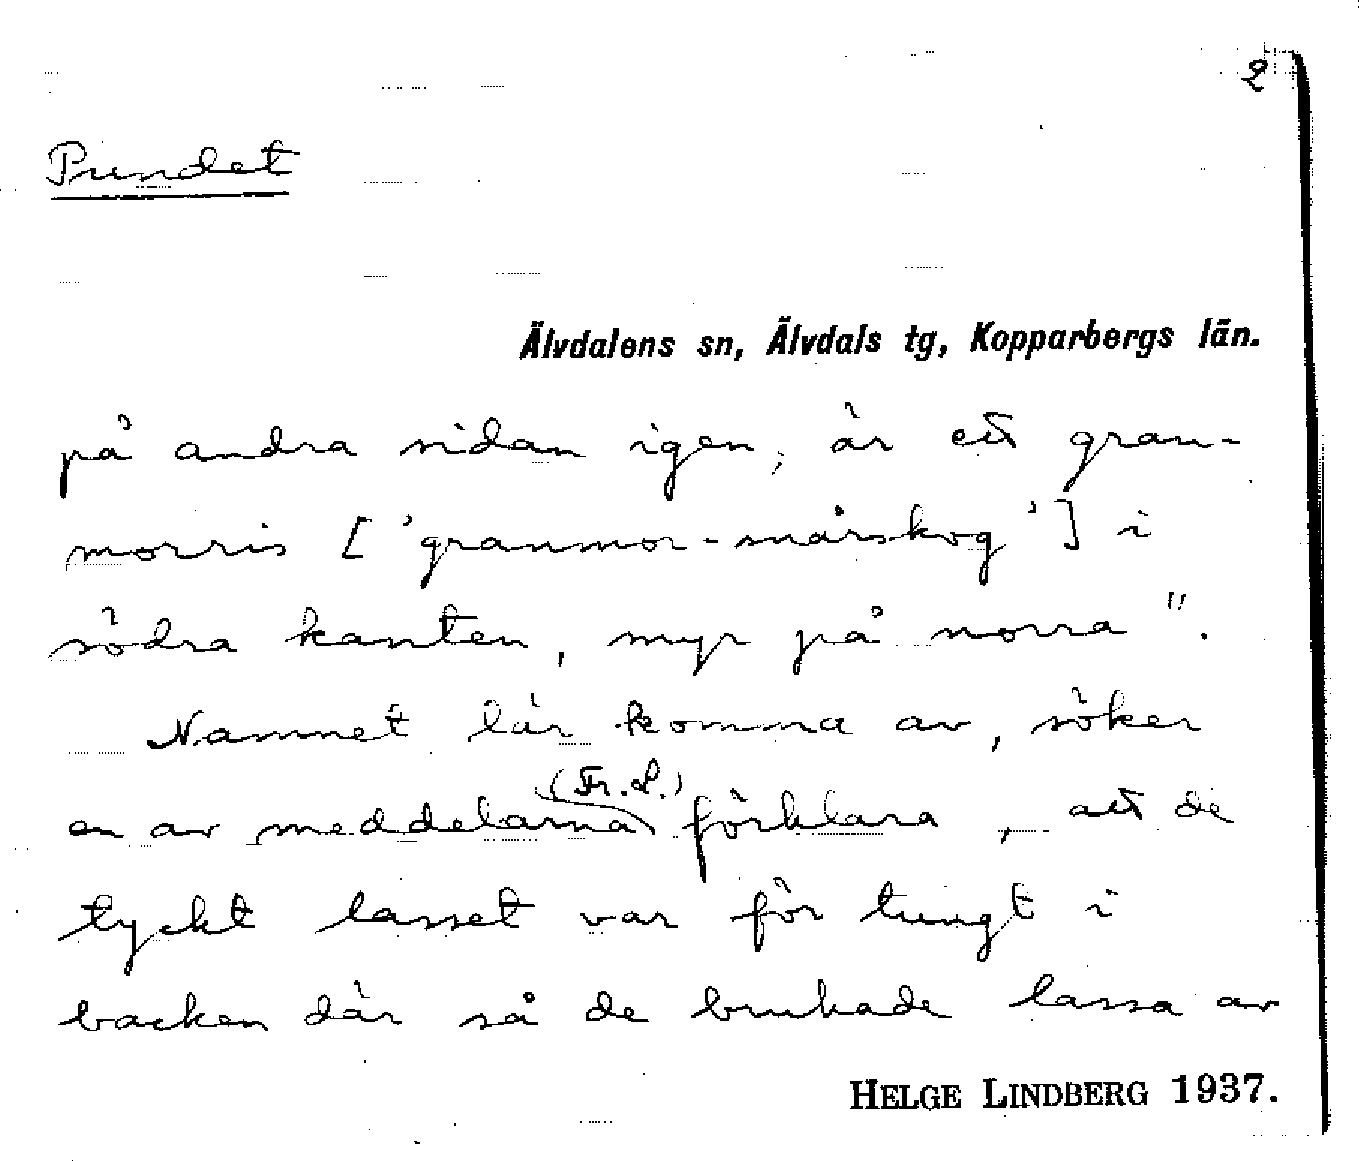 2
Pundet
Älvdalens sn, Älvdals tg, Kopparbergs län.
på andra sidan igen, är ett gran-
morris ['granmor-snårskog'] i
södra kanten, myr på norra".
Namnet lär komma av, söker
(Fr. L.)
en av meddelarna förklara, att de
tyckt lasset var för tungt i
backen där så de brukade lassa av
HELGE LINDBERG 1937.